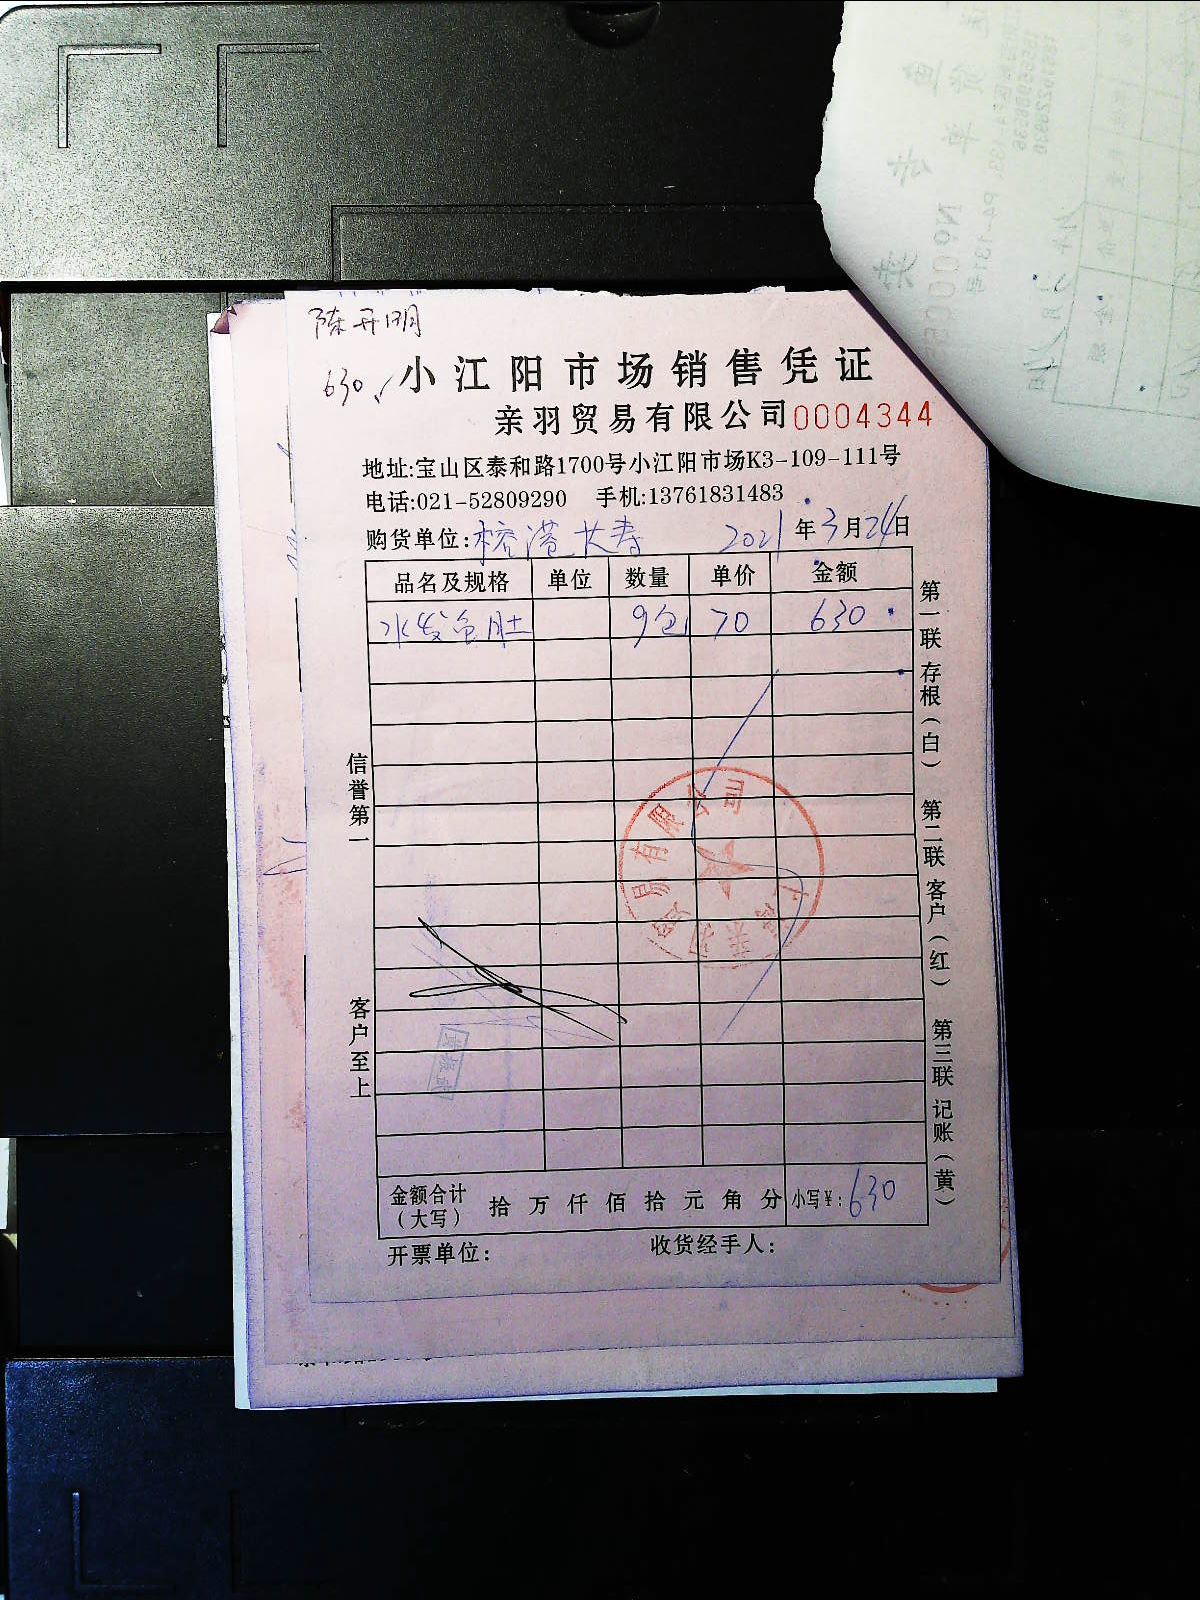 陈开明
630
小江阳市场销售凭证
亲羽贸易有限公司 0004344
地址:宝山区泰和路1700号小江阳市场K3-109-111号
电话:021-52809290 手机:13761831483
购货单位:榕港长寿 2021年3月24日
品名及规格 单位 数量 单价 金额
水发鱼肚 9包 70 630
信誉第一
客户至上
第一联 存根(白) 第二联 客户(红) 第三联 记账(黄)
贸易有限公司
金额合计(大写) 拾 万 仟 佰 拾 元 角 分 小写¥:630
开票单位: 收货经手人: